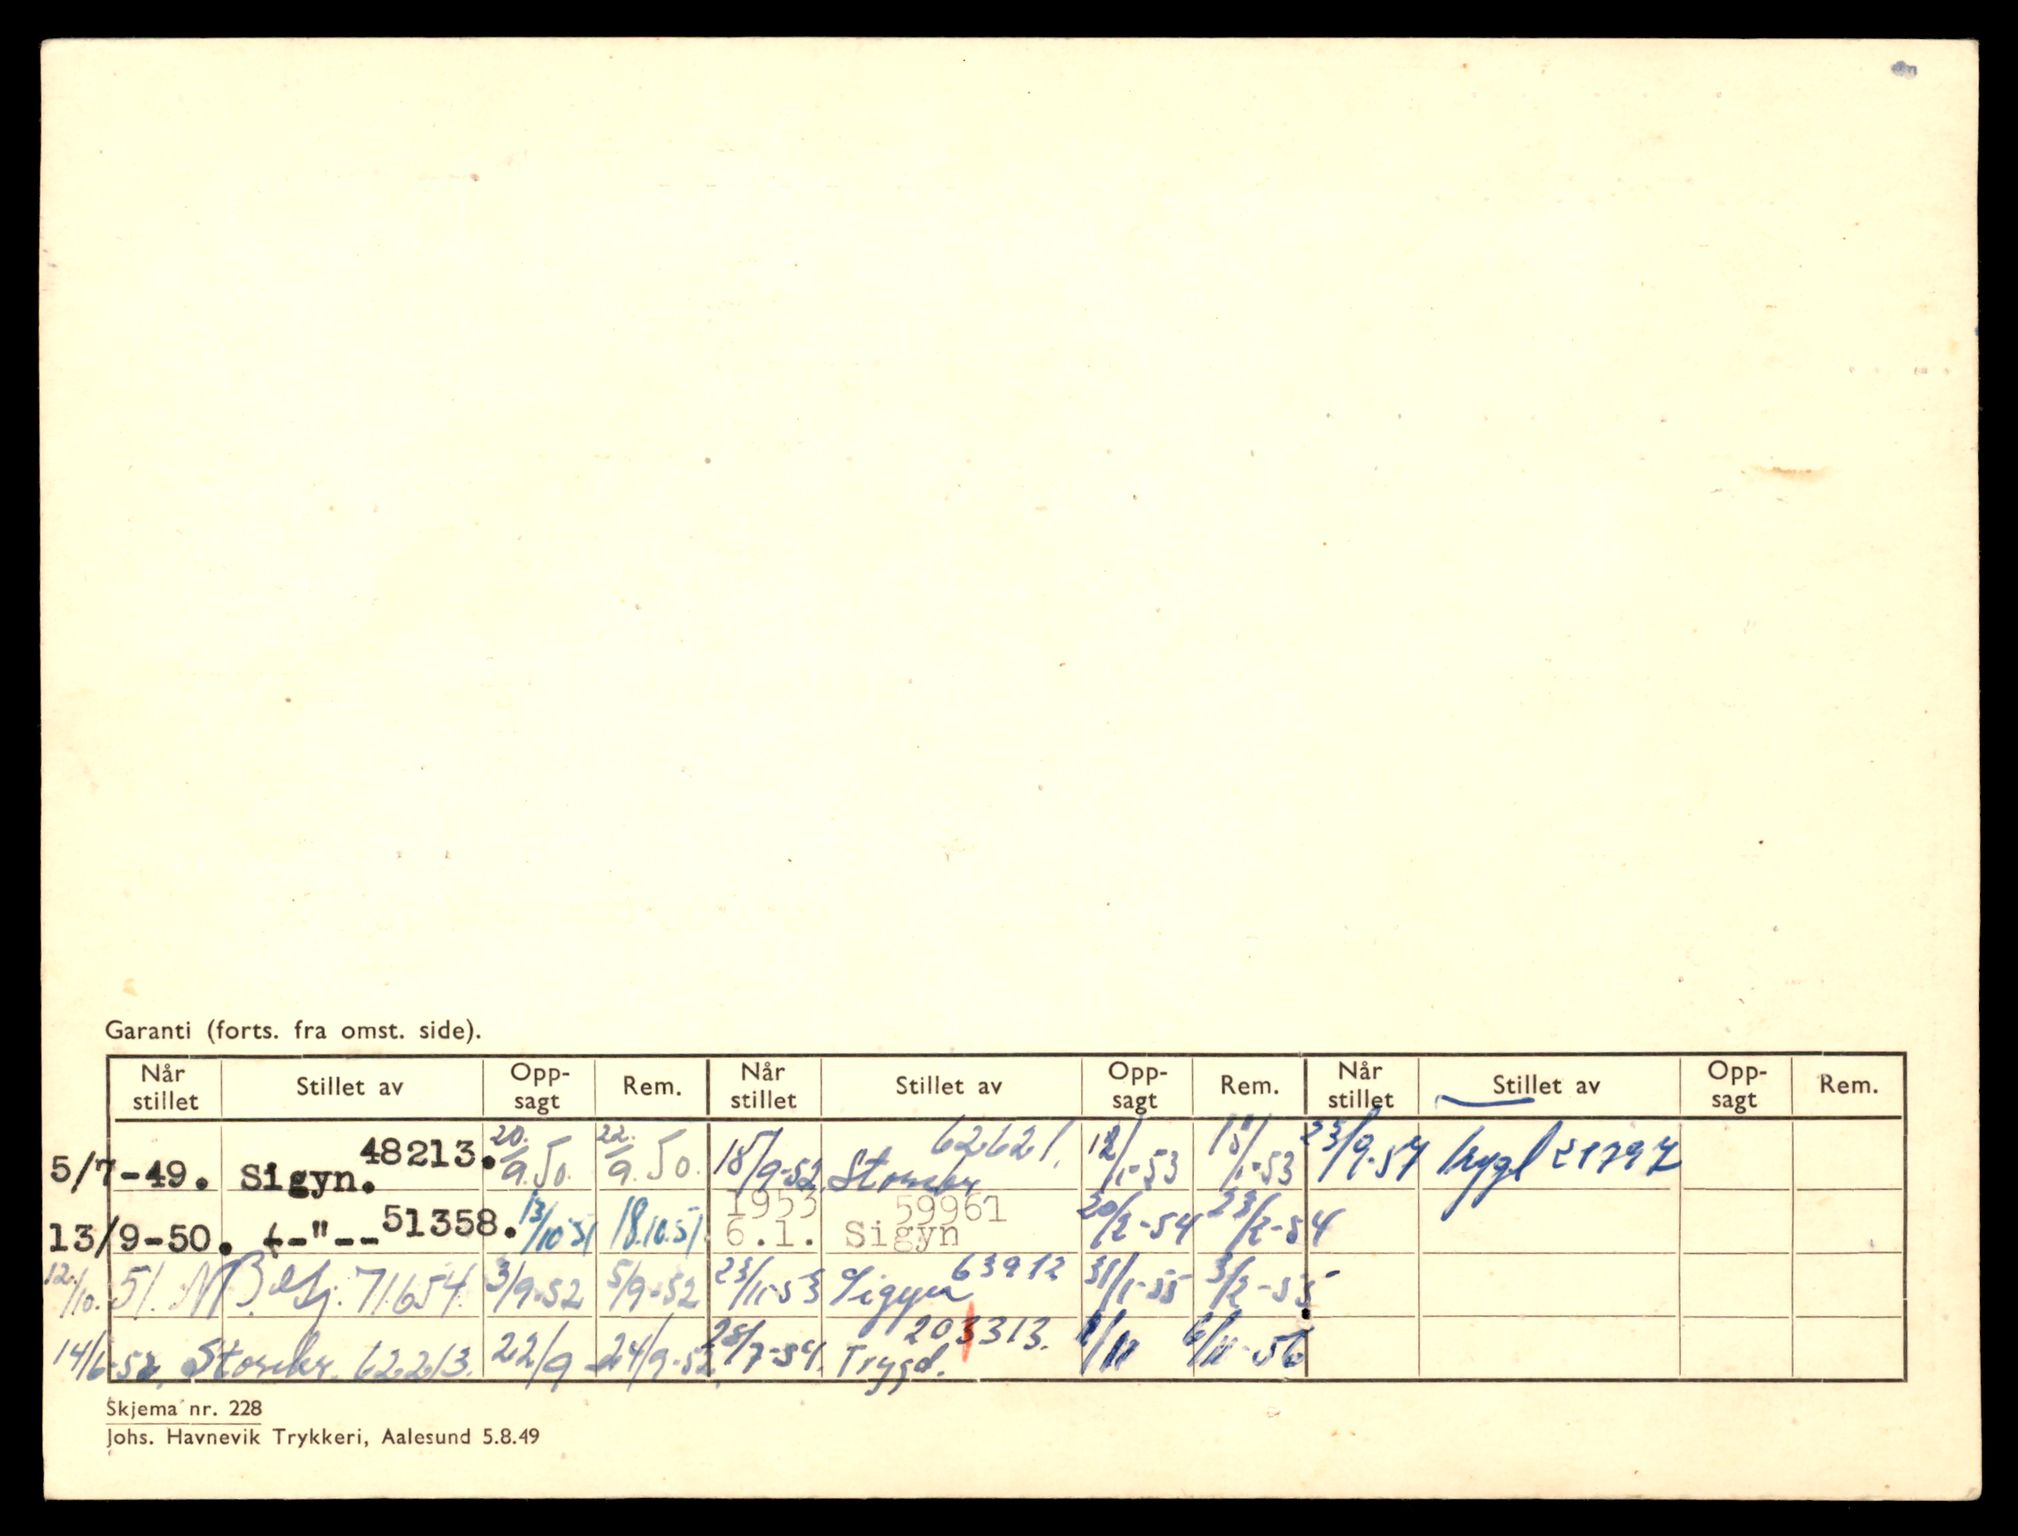 Garanti (forts. fra omst. side).
Når stillet Stillet av Opp-sagt Rem. Når stillet Stillet av Opp-sagt Rem. Når stillet Stillet av Opp-sagt Rem.
5/7-49. Sigyn. 48213. 20/9.50. 22/9.50. 15/9-52. Storebr 62621. 12/1-53 15/1-53 23/9-57 Trygd 21797
13/9-50. -"-- 51358. 13/10 51 18.10.51. 1953 6.1. Sigyn 59961 20/2-54 23/2-54
12/10. 51. 71654. 3/9-52 5/9-52 23/11-53 Sigyn 63912 31/1-55 3/2-55
14/6-52. Storebr. 62213. 22/9 24/9-52. 28/7-54. Trygd. 203313. /11 6/11-56
Skjema nr. 228
Johs. Havnevik Trykkeri, Aalesund 5.8.49